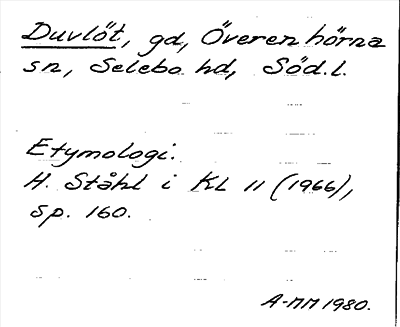 Duvlöt, gd, Överenhörna
sn, Selebo hd, Söd.l.
Etymologi.
H. Ståhl i KL 11 (1966),
sp. 160.
A-MM 1980.